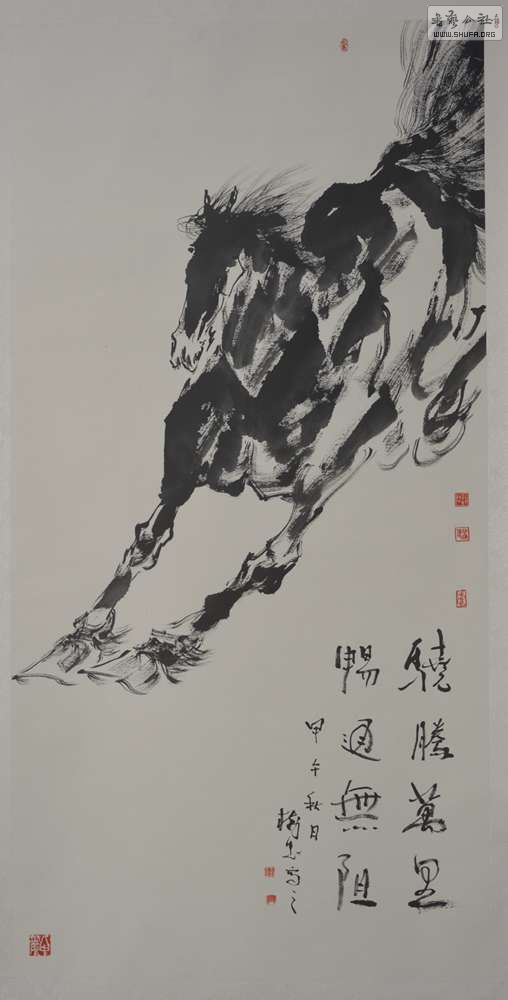 驍騰萬里
暢通無阻
甲午秋日
寫之
書藝公社
WWW.SHUFA.ORG